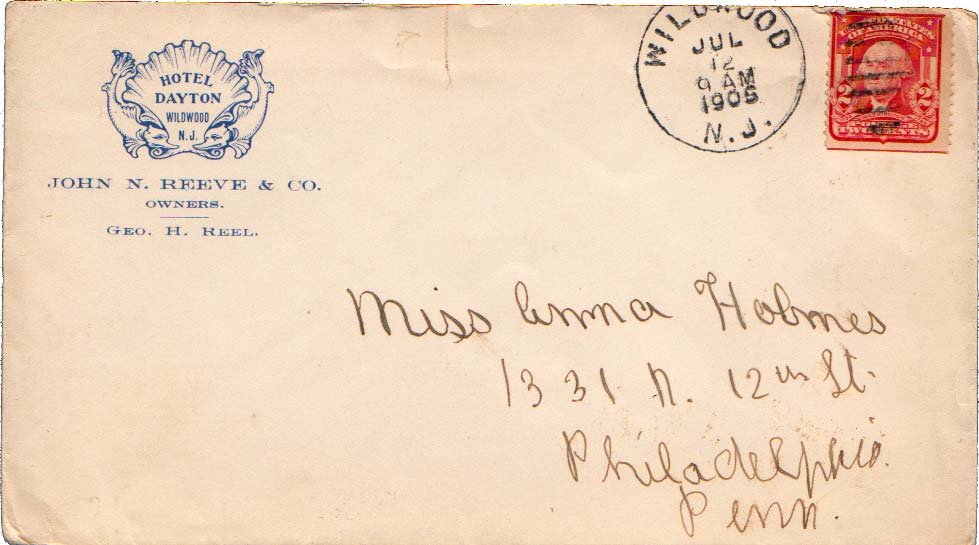 HOTEL
DAYTON
WILDWOOD
N.J.
JOHN N. REEVE & CO.
OWNERS.
GEO. H. REEL.
WILDWOOD
JUL
12
9 AM
N.J.
UNITED STATES
OF AMERICA
2 2
POSTAGE
TWO CENTS
Miss Emma Holmes
1331 N. 12th St.
Philadelphia.
Penn.